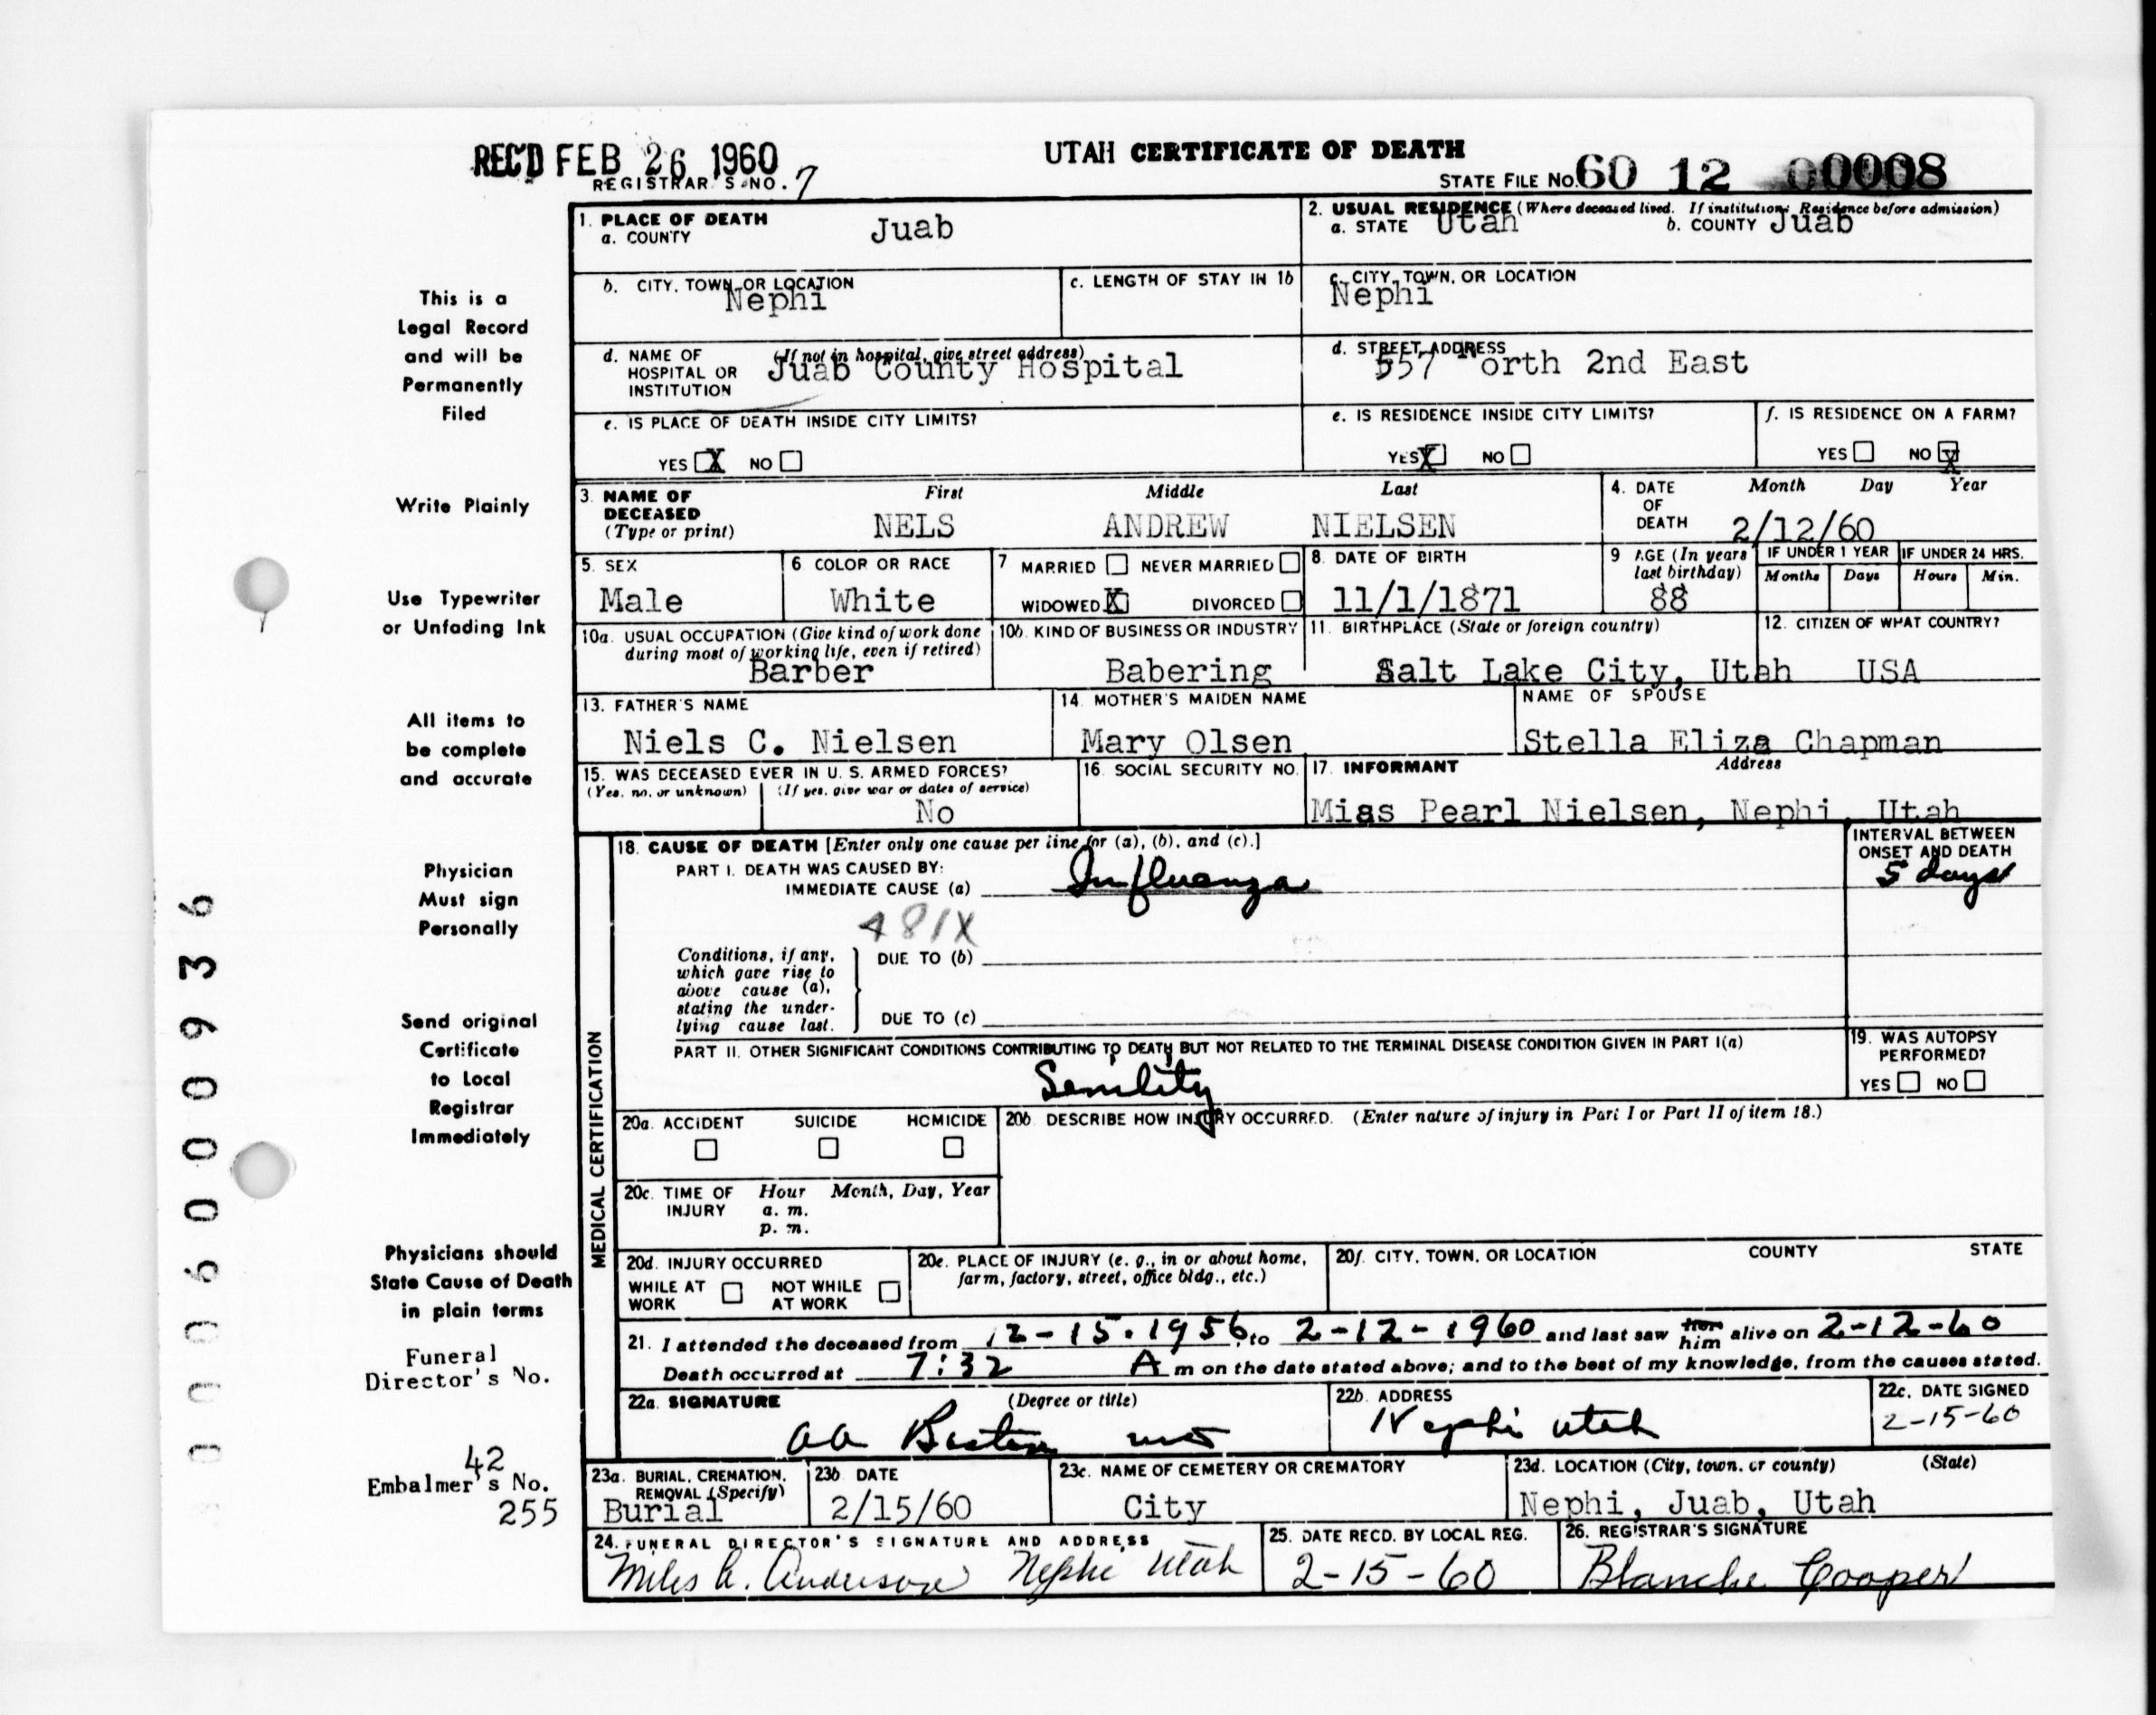 REC'D FEB 26 1960
UTAH CERTIFICATE OF DEATH
REGISTRAR'S NO. 7
STATE FILE NO. 60 12 00008
1. PLACE OF DEATH
a. COUNTY Juab
2. USUAL RESIDENCE (Where deceased lived. If institution: Residence before admission)
a. STATE Utah b. COUNTY Juab
b. CITY, TOWN, OR LOCATION
Nephi
c. LENGTH OF STAY IN 1b
c. CITY, TOWN, OR LOCATION
Nephi
d. NAME OF HOSPITAL OR INSTITUTION (If not in hospital, give street address)
Juab County Hospital
d. STREET ADDRESS
557 North 2nd East
e. IS PLACE OF DEATH INSIDE CITY LIMITS?
YES X NO
e. IS RESIDENCE INSIDE CITY LIMITS?
YES X NO
f. IS RESIDENCE ON A FARM?
YES NO X
3. NAME OF DECEASED (Type or print)
First Middle Last
NELS ANDREW NIELSEN
4. DATE OF DEATH Month Day Year
2/12/60
5. SEX
Male
6. COLOR OR RACE
White
7. MARRIED NEVER MARRIED
WIDOWED X DIVORCED
8. DATE OF BIRTH
11/1/1871
9. AGE (In years last birthday)
88
IF UNDER 1 YEAR
Months Days
IF UNDER 24 HRS.
Hours Min.
10a. USUAL OCCUPATION (Give kind of work done during most of working life, even if retired)
Barber
10b. KIND OF BUSINESS OR INDUSTRY
Babering
11. BIRTHPLACE (State or foreign country)
Salt Lake City, Utah
12. CITIZEN OF WHAT COUNTRY?
USA
13. FATHER'S NAME
Niels C. Nielsen
14. MOTHER'S MAIDEN NAME
Mary Olsen
NAME OF SPOUSE
Stella Eliza Chapman
15. WAS DECEASED EVER IN U. S. ARMED FORCES?
(Yes, no, or unknown) (If yes, give war or dates of service)
No
16. SOCIAL SECURITY NO.
17. INFORMANT Address
Miss Pearl Nielsen, Nephi, Utah
MEDICAL CERTIFICATION
18. CAUSE OF DEATH [Enter only one cause per line for (a), (b), and (c).]
PART I. DEATH WAS CAUSED BY:
IMMEDIATE CAUSE (a) Influenza
INTERVAL BETWEEN ONSET AND DEATH
5 days
481X
Conditions, if any, which gave rise to above cause (a), stating the underlying cause last.
DUE TO (b)
DUE TO (c)
PART II. OTHER SIGNIFICANT CONDITIONS CONTRIBUTING TO DEATH BUT NOT RELATED TO THE TERMINAL DISEASE CONDITION GIVEN IN PART I(a)
Senility
19. WAS AUTOPSY PERFORMED?
YES NO
20a. ACCIDENT SUICIDE HOMICIDE
20b. DESCRIBE HOW INJURY OCCURRED. (Enter nature of injury in Part I or Part II of item 18.)
20c. TIME OF INJURY Hour Month, Day, Year
a. m.
p. m.
20d. INJURY OCCURRED
WHILE AT WORK NOT WHILE AT WORK
20e. PLACE OF INJURY (e. g., in or about home, farm, factory, street, office bldg., etc.)
20f. CITY, TOWN, OR LOCATION COUNTY STATE
21. I attended the deceased from 12-15-1956, to 2-12-1960 and last saw her him alive on 2-12-60
Death occurred at 7:32 A m on the date stated above; and to the best of my knowledge, from the causes stated.
22a. SIGNATURE (Degree or title)
22b. ADDRESS
Nephi Utah
22c. DATE SIGNED
2-15-60
23a. BURIAL, CREMATION, REMOVAL (Specify)
Burial
23b. DATE
2/15/60
23c. NAME OF CEMETERY OR CREMATORY
City
23d. LOCATION (City, town, or county) (State)
Nephi, Juab, Utah
24. FUNERAL DIRECTOR'S SIGNATURE AND ADDRESS
Miles A. Anderson Nephi Utah
25. DATE RECD. BY LOCAL REG.
2-15-60
26. REGISTRAR'S SIGNATURE
Blanche Cooper
This is a
Legal Record
and will be
Permanently
Filed
Write Plainly
Use Typewriter
or Unfading Ink
All items to
be complete
and accurate
Physician
Must sign
Personally
Send original
Certificate
to Local
Registrar
Immediately
Physicians should
State Cause of Death
in plain terms
Funeral
Director's No.
42
Embalmer's No.
255